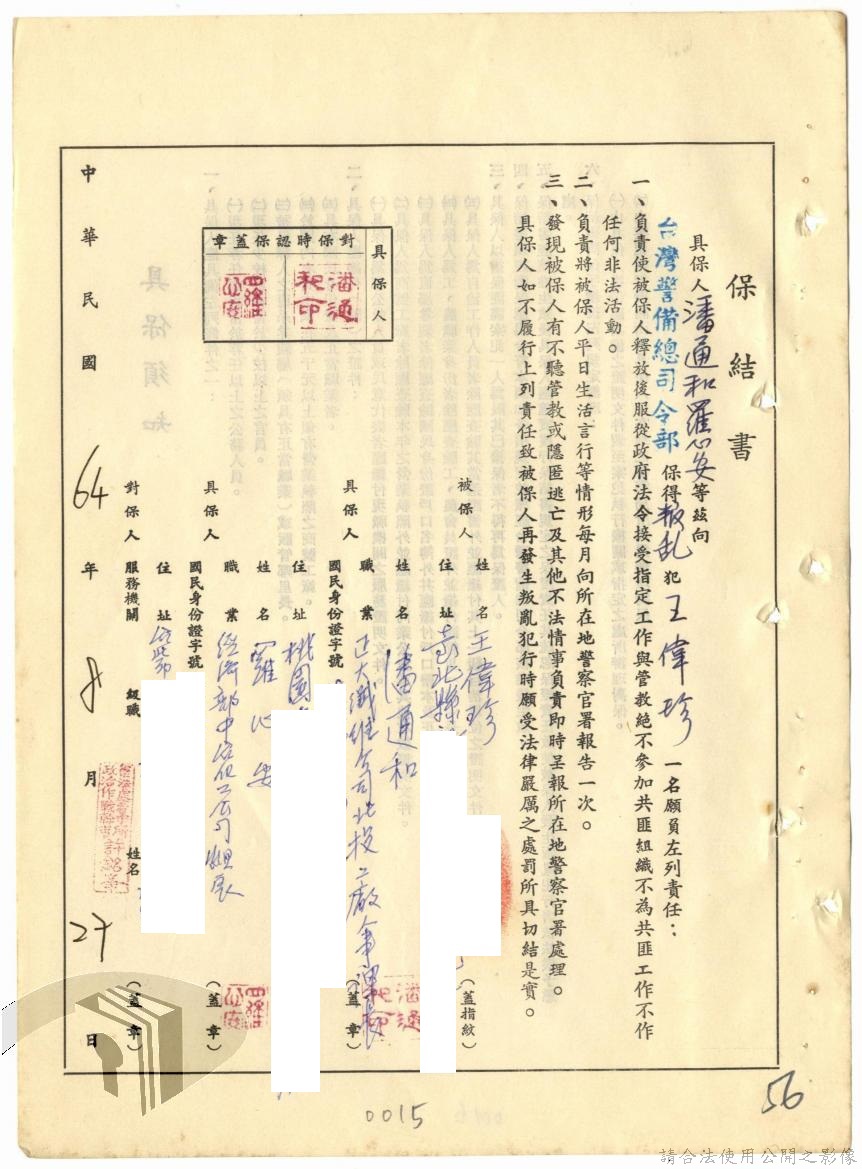 保結書
具保人潘通和羅心安等茲向
台灣警備總司令部 保得叛乱犯王偉珍一名願負左列責任：
一、負責使被保人釋放後服從政府法令接受指定工作與管教絕不參加共匪組織不為共匪工作不作
任何非法活動。
二、負責將被保人平日生活言行等情形每月向所在地警察官署報告一次。
三、發現被保人有不聽管教或隱匿逃亡及其他不法情事負責即時呈報所在地警察官署處理。
具保人如不履行上列責任致被保人再發生叛亂犯行時願受法律嚴厲之處罰所具切結是實。
具保人
對保時認保蓋章
潘通和印
羅心安
被保人 姓名 王偉珍
住址 臺北縣
（蓋指紋）
具保人 姓名 潘通和
職業 正大纖維公司北投工廠
（蓋章）
潘通和印
國民身份證字號
住址 桃園
具保人 姓名 羅心安
職業 經濟部中
（蓋章）
羅心安
國民身份證字號
住址
對保人 服務機關 級職 姓名
（蓋章）
中華民國64年8月27日
0015
56
請合法使用公開之影像